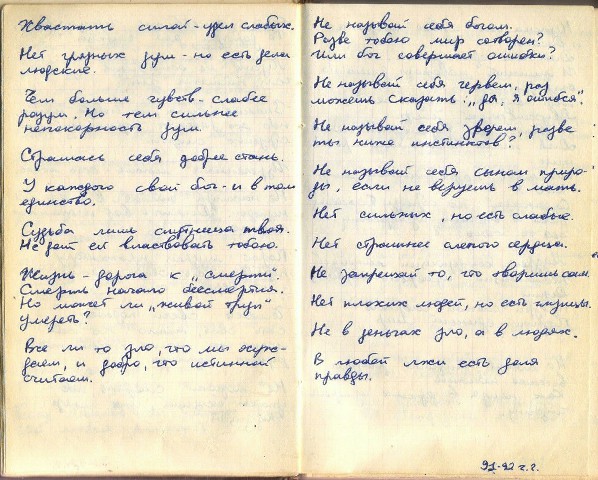 Хвастать силой - удел слабых.
Нет грязных дум - но есть дела
людские.
Чем больше чувств - слабее
разум. Но тем сильнее
непокорность дум.
Страшась себя добрее стань.
У каждого свой бог - и в том
единство.
Судьба лишь спутница твоя.
Не дай ей властвовать тобою.
Жизнь - дорога к „смерти".
Смерть начало бессмертия.
Но может ли „живой труп"
умереть?
Все ли то зло, что мы осуж-
даем, и добро, что истинной
считаем.
Не называй себя богом.
Разве тобою мир сотворен?
Или бог совершает ошибки?
Не называй себя червем, раз
можешь сказать: „Да, я ошибся".
Не называй себя зверем, разве
ты ниже инстинктов?
Не называй себя сыном приро-
ды, если не веруешь в мать.
Нет сильных, но есть слабые.
Нет страшнее слепого сердца.
Не запрещай то, что творишь сам.
Нет плохих людей, но есть глупцы.
Не в деньгах зло, а в людях.
В любой лжи есть доля
правды.
91-92 г.г.